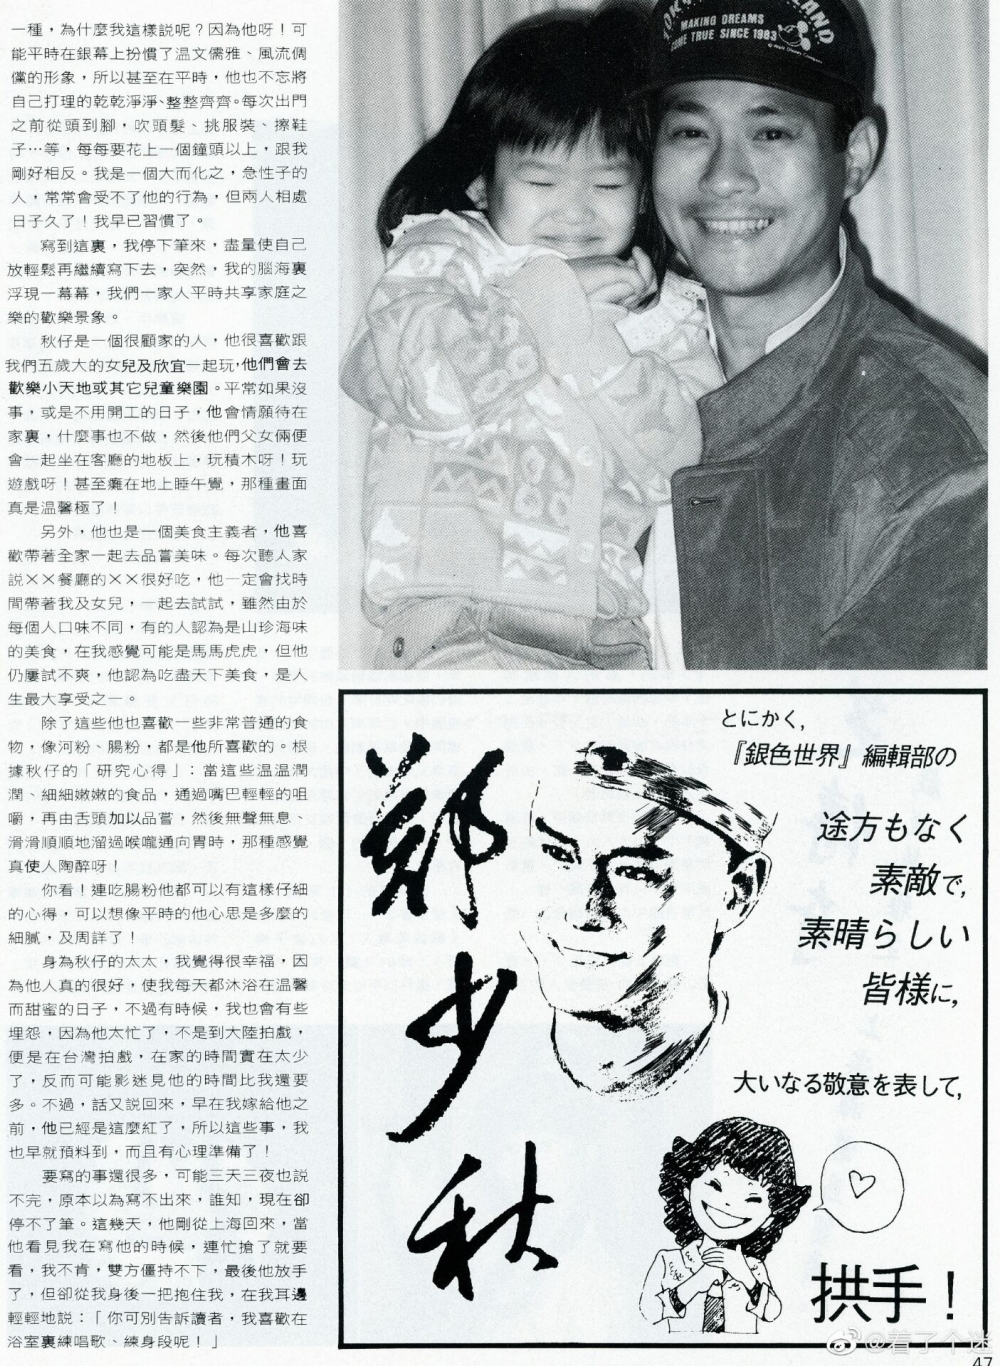 一種，為什麼我這樣説呢？因為他呀！可
能平時在銀幕上扮慣了温文儒雅、風流倜
儻的形象，所以甚至在平時，他也不忘將
自己打理的乾乾淨淨、整整齊齊。每次出門
之前從頭到腳，吹頭髮、挑服裝、擦鞋
子…等，每每要花上一個鐘頭以上，跟我
剛好相反。我是一個大而化之，急性子的
人，常常會受不了他的行為，但兩人相處
日子久了！我早已習慣了。
寫到這裏，我停下筆來，盡量使自己
放輕鬆再繼續寫下去，突然，我的腦海裏
浮現一幕幕，我們一家人平時共享家庭之
樂的歡樂景象。
秋仔是一個很顧家的人，他很喜歡跟
我們五歲大的女兒及欣宜一起玩，他們會去
歡樂小天地或其它兒童樂園。平常如果沒
事，或是不用開工的日子，他會情願待在
家裏，什麼事也不做，然後他們父女倆便
會一起坐在客廳的地板上，玩積木呀！玩
遊戲呀！甚至癱在地上睡午覺，那種畫面
真是温馨極了！
另外，他也是一個美食主義者，他喜
歡帶著全家一起去品嘗美味。每次聽人家
説××餐廳的××很好吃，他一定會找時
間帶著我及女兒，一起去試試，雖然由於
每個人口味不同，有的人認為是山珍海味
的美食，在我感覺可能是馬馬虎虎，但他
仍屢試不爽，他認為吃盡天下美食，是人
生最大享受之一。
除了這些他也喜歡一些非常普通的食
物，像河粉、腸粉，都是他所喜歡的。根
據秋仔的「研究心得」：當這些温温潤
潤、細細嫩嫩的食品，通過嘴巴輕輕的咀
嚼，再由舌頭加以品嘗，然後無聲無息、
滑滑順順地溜過喉嚨通向胃時，那種感覺
真使人陶醉呀！
你看！連吃腸粉他都可以有這樣仔細
的心得，可以想像平時的他心思是多麼的
細膩，及周詳了！
身為秋仔的太太，我覺得很幸福，因
為他人真的很好，使我每天都沐浴在温馨
而甜蜜的日子，不過有時候，我也會有些
埋怨，因為他太忙了，不是到大陸拍戲，
便是在台灣拍戲，在家的時間實在太少
了，反而可能影迷見他的時間比我還要
多。不過，話又説回來，早在我嫁給他之
前，他已經是這麼紅了，所以這些事，我
也早就預料到，而且有心理準備了！
要寫的事還很多，可能三天三夜也説
不完，原本以為寫不出來，誰知，現在卻
停不了筆。這幾天，他剛從上海回來，當
他看見我在寫他的時候，連忙搶了就要
看，我不肯，雙方僵持不下，最後他放手
了，但卻從我身後一把抱住我，在我耳邊
輕輕地説：「你可別告訴讀者，我喜歡在
浴室裏練唱歌、練身段呢！」
MAKING DREAMS
COME TRUE SINCE 1983
鄭少秋
とにかく，
『銀色世界』編輯部の
途方もなく
素敵で，
素晴らしい
皆様に，
大いなる敬意を表して，
拱手！
@着了个迷
47